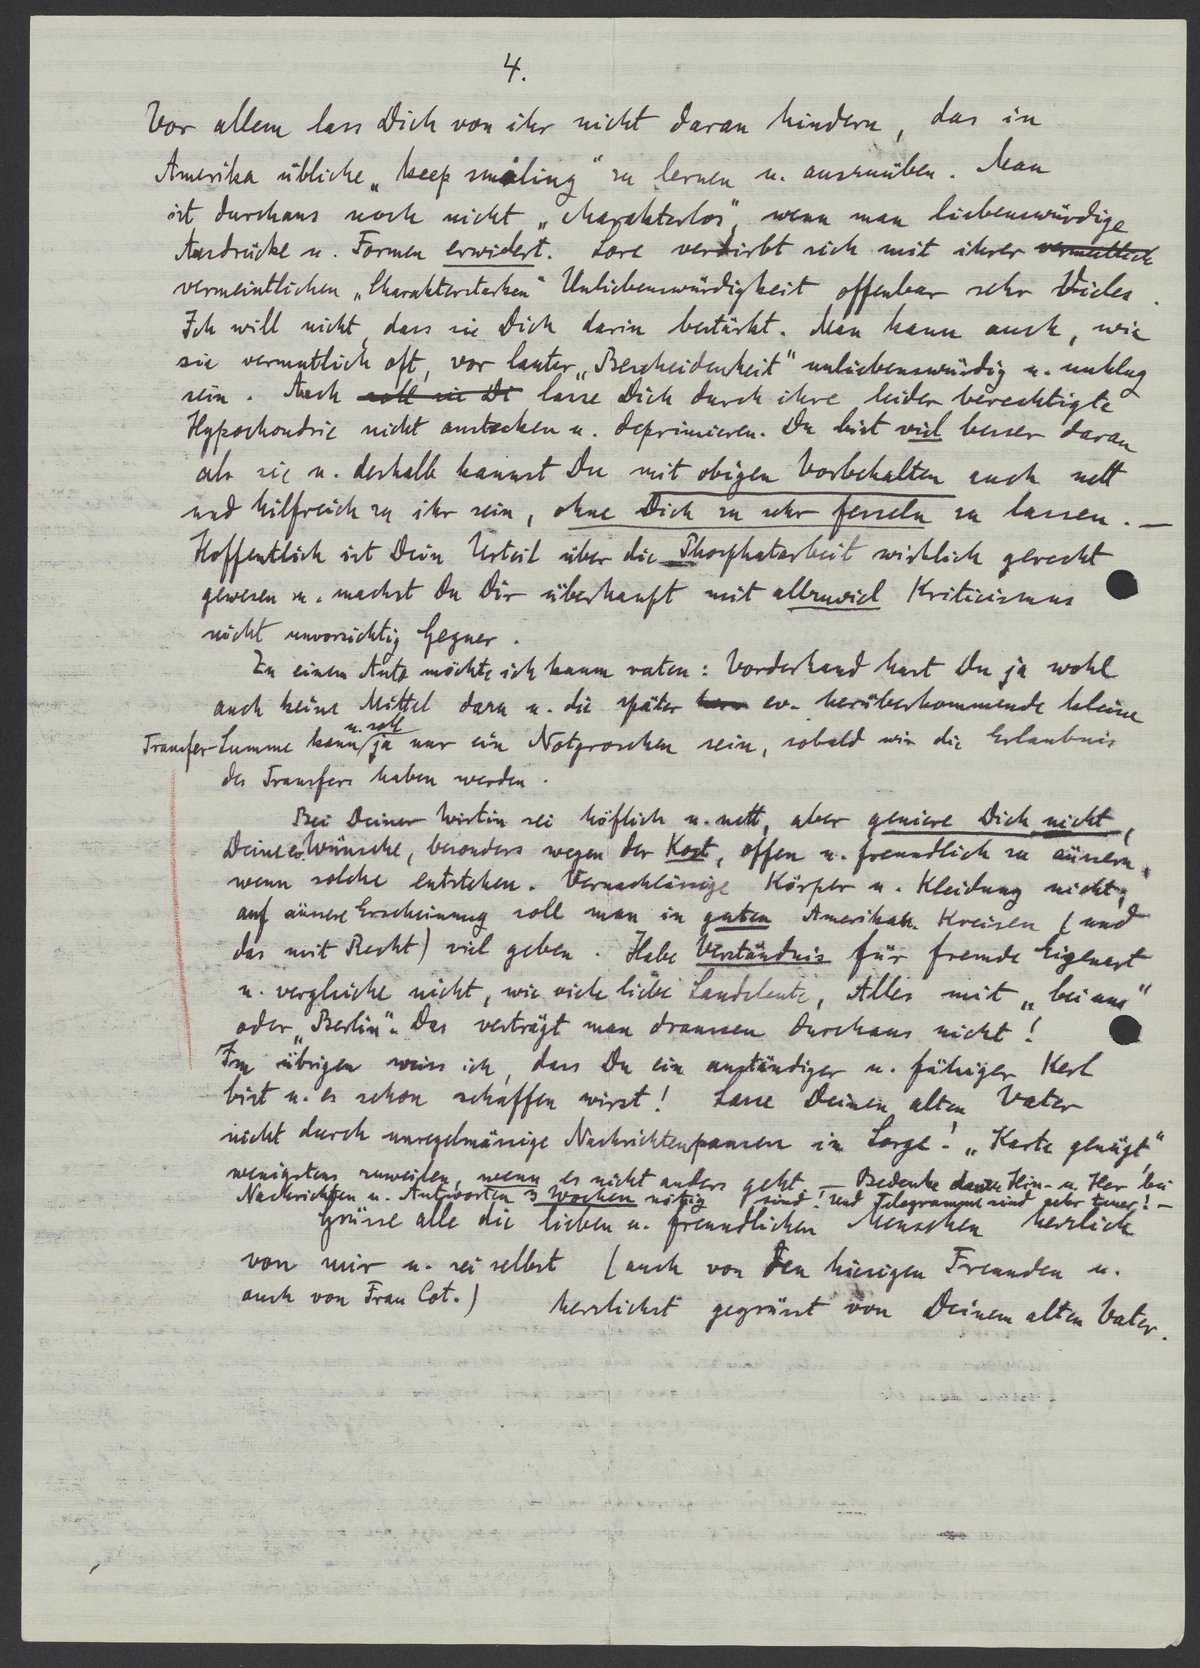 4.
Vor allem lass Dich von ihr nicht daran hindern, das in
Amerika übliche „keep smiling" zu lernen u. auszuüben. Man
ist durchaus noch nicht „charakterlos", wenn man liebenswürdige
Ausdrücke u. Formen erwidert. Lore verdirbt sich mit ihrer vermeintlich
vermeintlichen „Charakterstarken" Unliebenswürdigkeit offenbar sehr Vieles.
Ich will nicht, dass sie Dich darin bestärkt. Man kann auch, wie
sie vermutlich oft, vor lauter „Bescheidenheit" unliebenswürdig u. unklug
sein. Auch soll sie Di lasse Dich durch ihre leider berechtigte
Hypochondrie nicht anstecken u. deprimieren. Du bist viel besser daran
als sie u. deshalb kannst Du mit obigen Vorbehalten auch nett
und hilfreich zu ihr sein, ohne Dich zu sehr fesseln zu lassen. —
Hoffentlich ist Dein Urteil über die Phosphatarbeit wirklich gerecht
gewesen u. machst Du Dir überhaupt mit allzuviel Kriticismus
nicht unvorsichtig Gegner.
Zu einem Auto möchte ich kaum raten: Vorderhand hast Du ja wohl
auch keine Mittel dazu u. die später ev. herüberkommende kleine
Transfer-Summe kann u. soll ja nur ein Notgroschen sein, sobald wir die Erlaubnis
des Transfers haben werden.
Bei Deiner Wirtin sei höflich u. nett, aber geniere Dich nicht,
Deine Wünsche, besonders wegen der Kost, offen u. freundlich zu äussern,
wenn solche entstehen. Vernachlässige Körper u. Kleidung nicht;
auf äussere Erscheinung soll man in guten Amerikan. Kreisen (und
das mit Recht) viel geben. Habe Verständnis für fremde Eigenart
u. vergleiche nicht, wie viele liebe Landsleute, Alles mit „bei uns"
oder „Berlin". Das verträgt man draussen durchaus nicht!
Im übrigen weiss ich, dass Du ein anständiger u. fähiger Kerl
bist u. es schon schaffen wirst! Lasse Deinen alten Vater
nicht durch unregelmässige Nachrichtenpausen in Sorge! „Karte genügt"
wenigstens zuweilen, wenn es nicht anders geht. — Bedenke dass Hin- u. Her bei
Nachrichten u. Antworten 3 Wochen nötig sind! und Telegramme sind sehr teuer! —
Grüsse alle die lieben u. freundlichen Menschen herzlich
von mir u. sei selbst (auch von den hiesigen Freunden u.
auch von Frau Cot.) herzlichst gegrüsst von Deinem alten Vater.